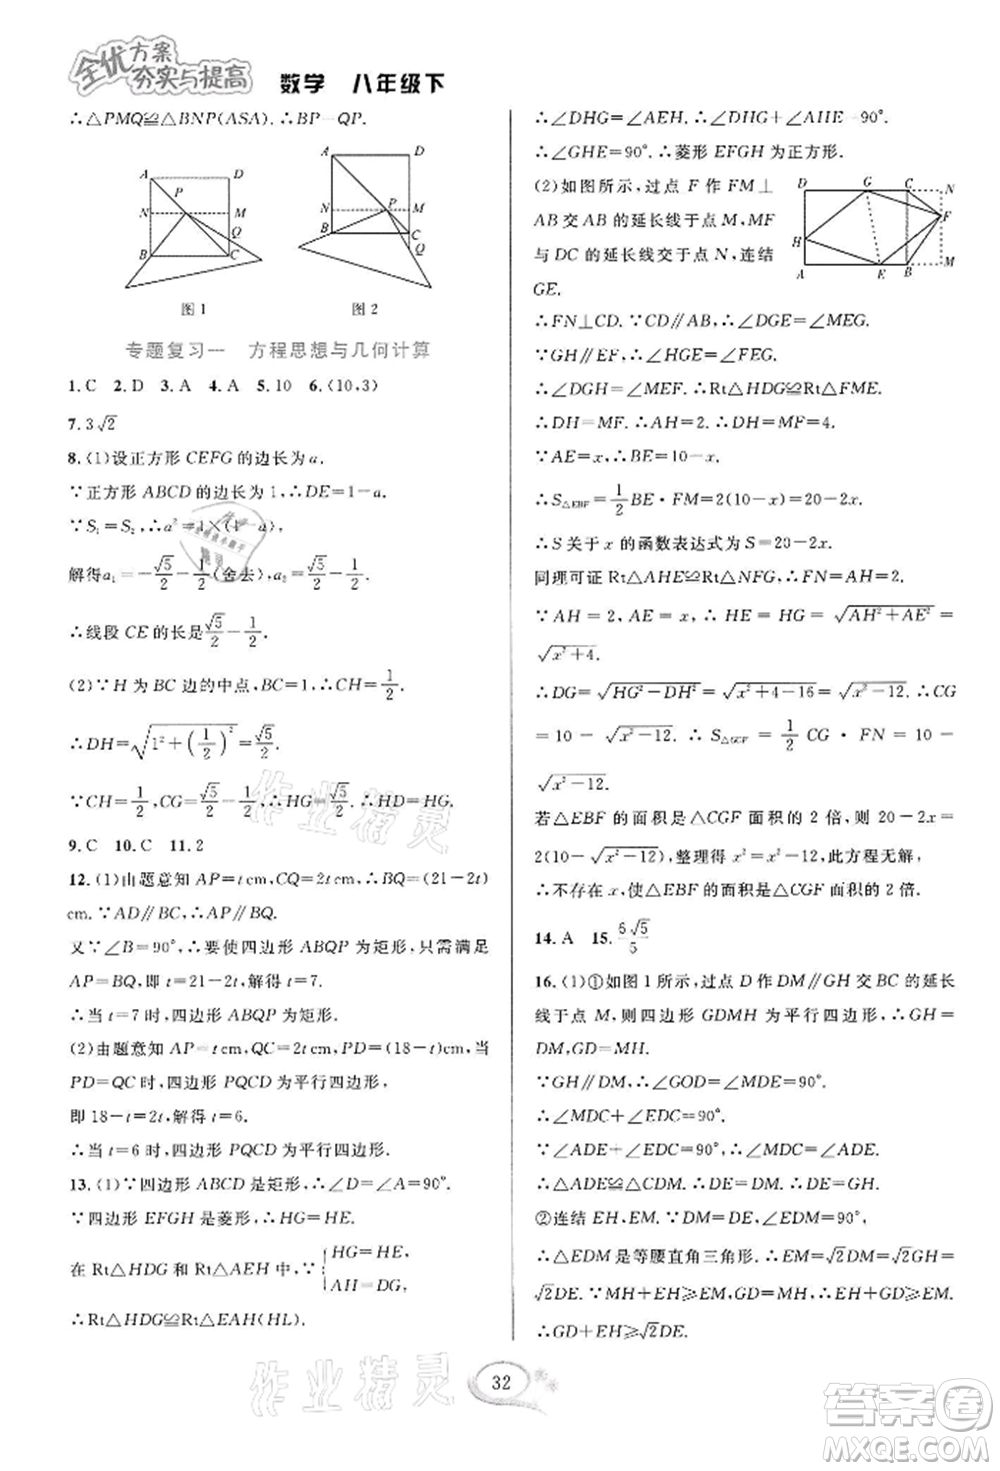 全优方案
夯实与提高
数学 八年级下
∴△PMQ≌△BNP(ASA). ∴BP=QP.
A D P N M Q B C
A D N P M B C Q
图1 图2
专题复习一 方程思想与几何计算
1.C 2.D 3.A 4.A 5.10 6.(10,3)
7.3√2
8.(1)设正方形 CEFG 的边长为 a.
∵正方形 ABCD 的边长为 1,∴DE=1-a.
∵S₁=S₂,∴a²=1×(1-a),
解得a₁=-√5/2-1/2(舍去),a₂=√5/2-1/2.
∴线段 CE 的长是√5/2-1/2.
(2)∵H 为 BC 边的中点,BC=1,∴CH=1/2.
∴DH=√(1²+(1/2)²)=√5/2.
∵CH=1/2,CG=√5/2-1/2,∴HG=√5/2.∴HD=HG.
9.C 10.C 11.2
12.(1)由题意知 AP=t cm,CQ=2t cm,∴BQ=(21-2t)
cm.∵AD∥BC,∴AP∥BQ.
又∵∠B=90°,∴要使四边形 ABQP 为矩形,只需满足
AP=BQ,即 t=21-2t,解得 t=7.
∴当 t=7 时,四边形 ABQP 为矩形.
(2)由题意知 AP=t cm,QC=2t cm,PD=(18-t)cm,当
PD=QC 时,四边形 PQCD 为平行四边形,
即 18-t=2t,解得 t=6.
∴当 t=6 时,四边形 PQCD 为平行四边形.
13.(1)∵四边形 ABCD 是矩形,∴∠D=∠A=90°.
∵四边形 EFGH 是菱形,∴HG=HE.
在 Rt△HDG 和 Rt△AEH 中,∵{HG=HE, AH=DG,
∴Rt△HDG≌Rt△EAH(HL).
∴∠DHG=∠AEH.∴∠DHG+∠AHE=90°.
∴∠GHE=90°.∴菱形 EFGH 为正方形.
(2)如图所示,过点 F 作 FM⊥
AB交 AB 的延长线于点 M,MF
与 DC 的延长线交于点 N,连结
GE.
D G C N F H A E B M
∴FN⊥CD.∵CD∥AB,∴∠DGE=∠MEG.
∵GH∥EF,∴∠HGE=∠FEG.
∴∠DGH=∠MEF.∴Rt△HDG≌Rt△FME.
∴DH=MF.∵AH=2,∴DH=MF=4.
∵AE=x,∴BE=10-x.
∴S△EBF=1/2BE·FM=2(10-x)=20-2x.
∴S 关于 x 的函数表达式为 S=20-2x.
同理可证 Rt△AHE≌Rt△NFG,∴FN=AH=2.
∵AH=2,AE=x,∴HE=HG=√(AH²+AE²)=
√(x²+4).
∴DG=√(HG²-DH²)=√(x²+4-16)=√(x²-12).∴CG
=10-√(x²-12).∴S△GCF=1/2CG·FN=10-
√(x²-12).
若△EBF 的面积是△CGF 面积的 2 倍,则 20-2x=
2(10-√(x²-12)),整理得 x²=x²-12,此方程无解,
∴不存在 x,使△EBF 的面积是△CGF 面积的 2 倍.
14.A 15.6√5/5
16.(1)①如图 1 所示,过点 D 作 DM∥GH 交 BC 的延长
线于点 M,则四边形 GDMH 为平行四边形,∴GH=
DM,GD=MH.
∵GH∥DM,∴∠GOD=∠MDE=90°.
∴∠MDC+∠EDC=90°.
∵∠ADE+∠EDC=90°,∴∠MDC=∠ADE.
∴△ADE≌△CDM.∴DE=DM.∴GH=DE.
②连结 EH,EM.∵DM=DE,∠MDE=90°,
∴△EDM是等腰直角三角形.∴EM=√2DM=
√2DE.∵MH+EH≥EM,GD=MH,∴EH+GD≥
√2DE.∴GD+EH≥√2DE.
作业精灵
作业精灵
32
答案圈
MXQE.COM